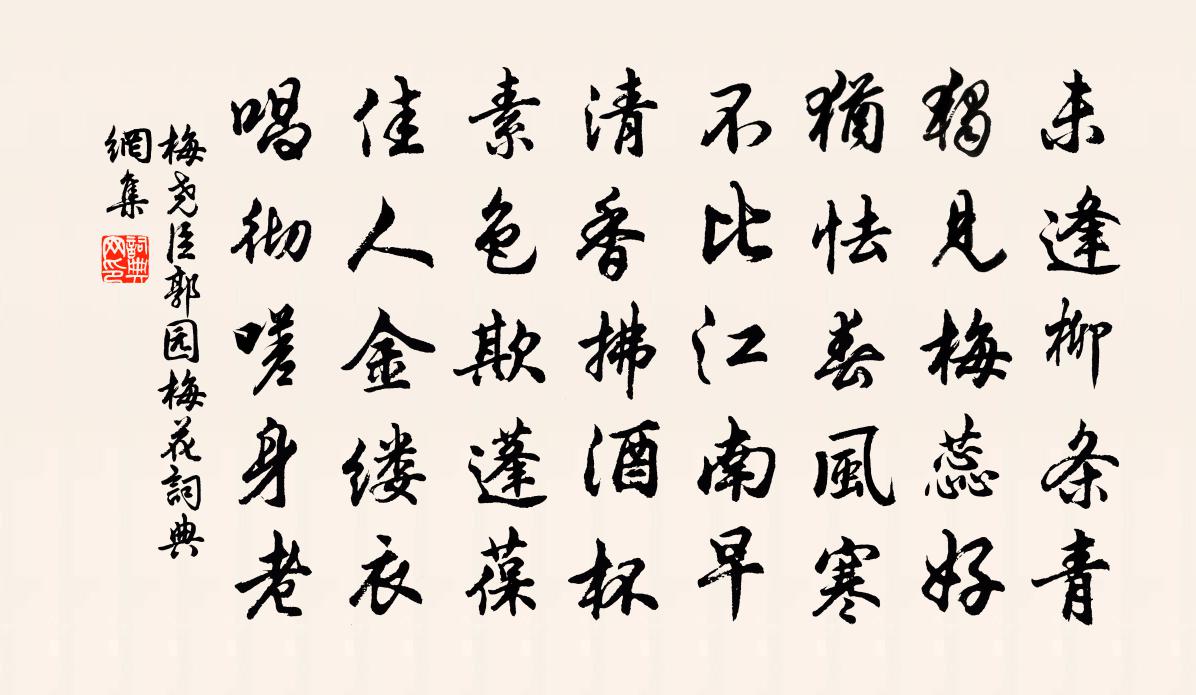 未逢柳条青
独见梅蕊好
猶怯春風寒
不比江南早
清香拂酒杯
素色欺蓬葆
佳人金缕衣
唱彻嗟身老
梅尧臣郭园梅花詞典
網集
詞典
网印